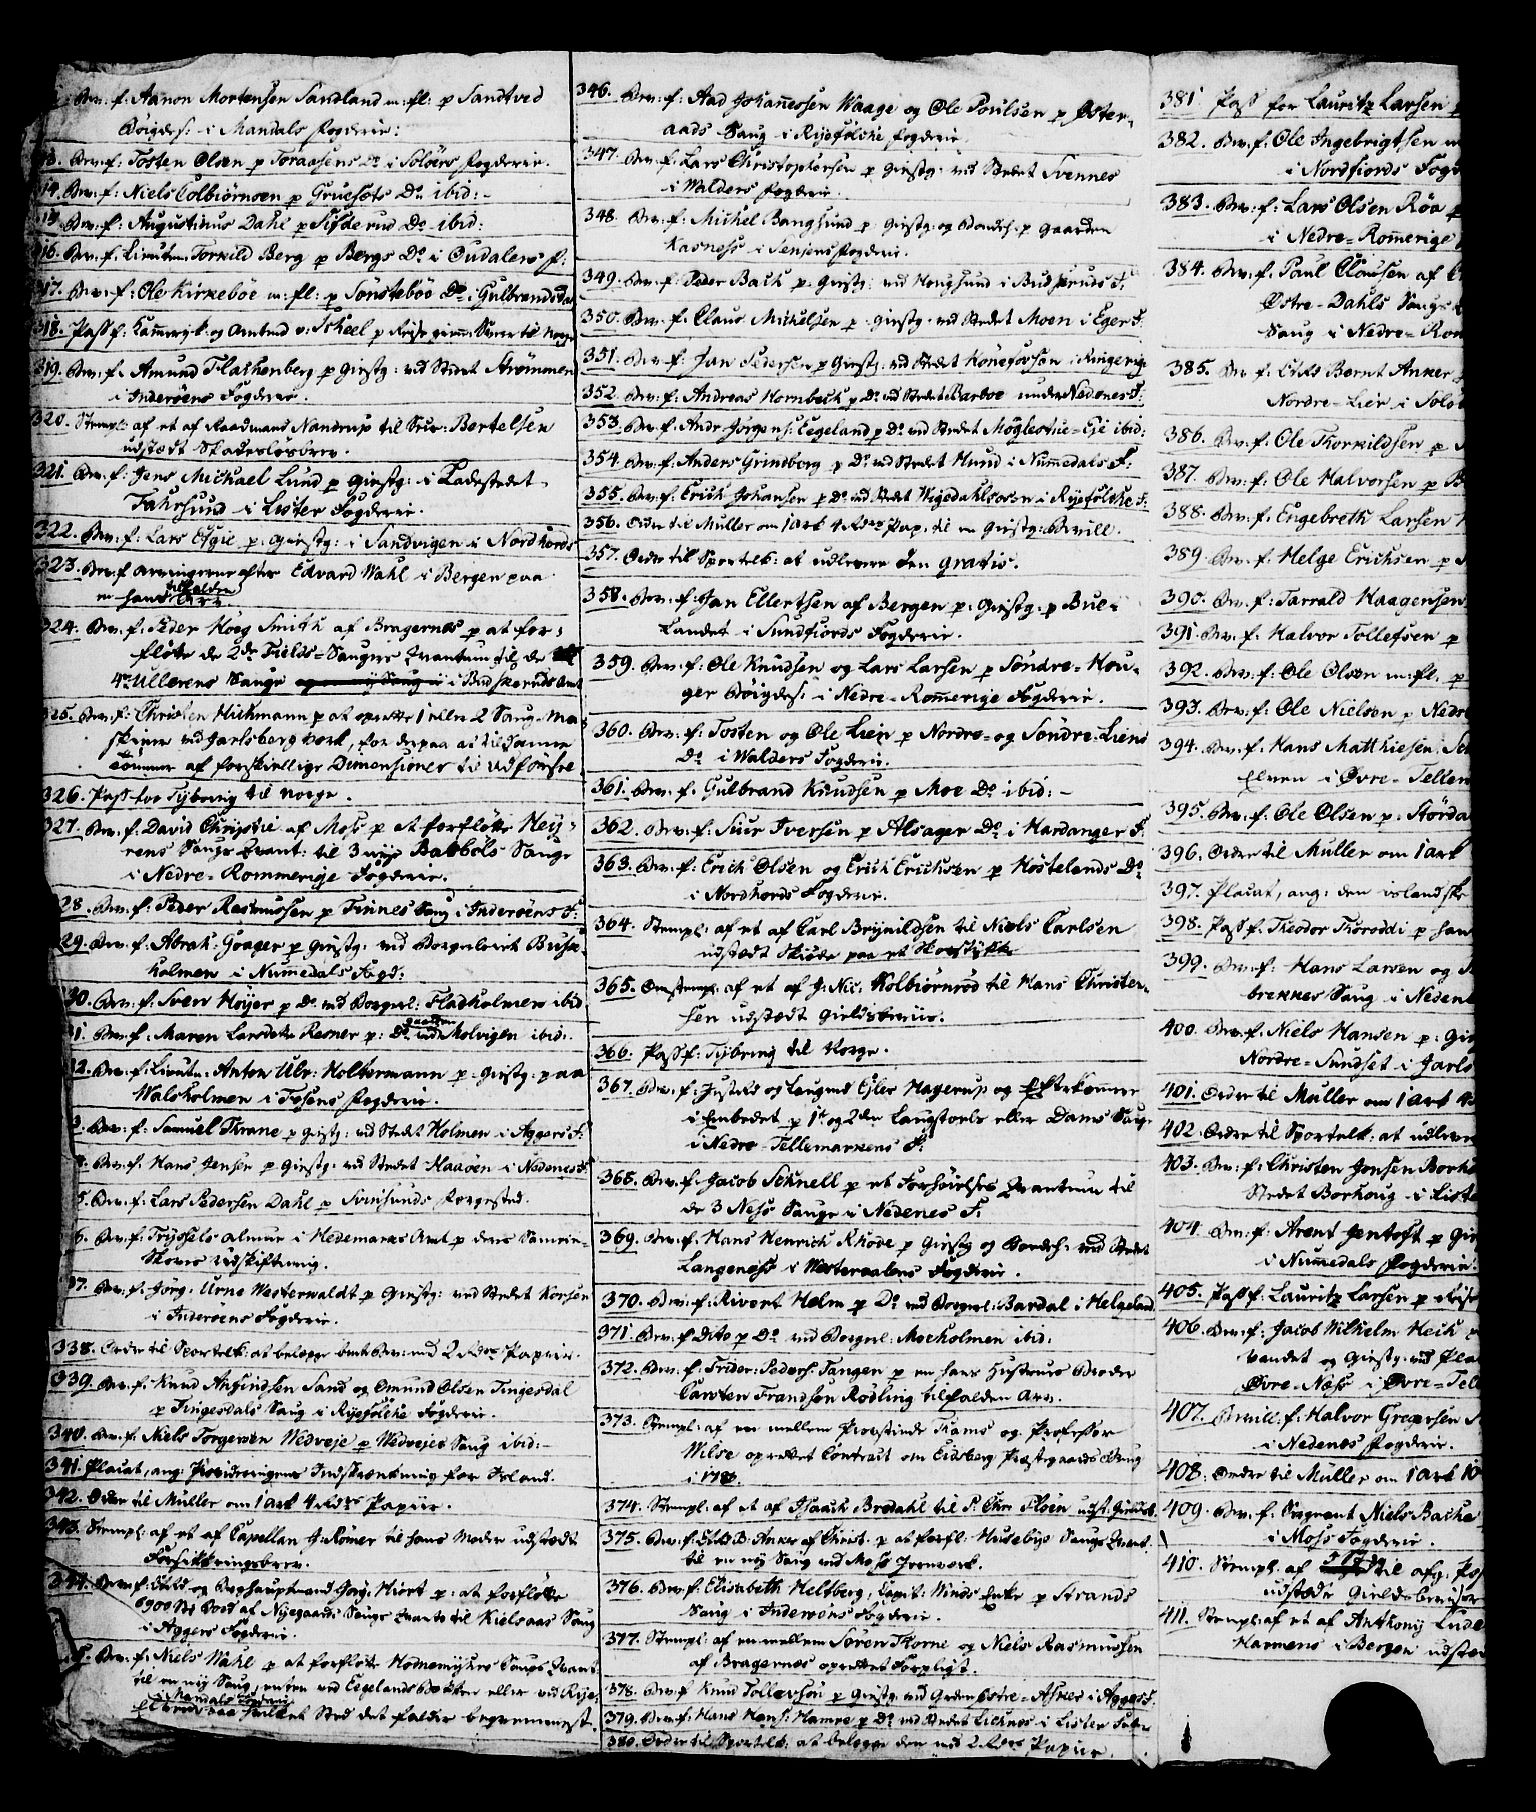 Bev: f: Aanon Mortensen Sandland m: fl: p Sandtved
Böigdes: i Mandals Fogderie:
13. Bev: f: Tosten Olsen p Toraasens Do i Solöers Fogderie.
14. Bev: f: Niels Colbiörnsen p Gruesets Do ibid: -
15. Bev: f: Augustinus Dahl p Do ibid:
16. Bev: f. Lieutn. Torkild Berg p Bergs Do i Oudalens f:
317. Bev: f: Ole Kirkeböe m: fl: p Sönsteböe Do i Gulbrandsdal
318. Pass f: Kammerjk: og Amtmd v: Scheel p Reise giennem Sverrig til Norge
319. Bev: f. Amund Flathenberg p Giestg: ved Stedet Strömmen
i Inderöens Fogderie.
320. Stempl: af et af Raadmand Nandrup til Sr: Bertelsen
udstædt Skadeslösbrev.
321. Bev: f: Jens Michael Lund p Giestg: i Ladestedet
Fahrsund i Lister Fogderie.
322. Bev: f: Lars Espie p. Giestg: i Sandvigen i Nordhords
323. Bev: f arvingerne efter Edvard Wahl i Bergen paa
en hans tilfalden Arv.
324. Bev: f: Peder Hoeg Smith af Bragernes p at for-
fløtte de 2de Fields-Sauges Qvantum til de
4re Ullerens Sauge i Budskeruds Amt
325. Bev: f: Christen Hichmann p at oprette 1 eller 2 Saug-ma-
skiner ved Jarlsberg Værk, for derpaa at tildanne
tømmer af forskiellige Dimensioner til udførsel
326. Pass for Tÿbring til Norge.
327. Bev: f. David Christie af Moss p at forfløtte Heÿ-
rens Saugs Qvant: til 3 nÿe Babböls Sauge
i Nedre-Rommerige Fogderie.
28. Bev: f: Peder Rasmussen p Finnes Saug i Inderöens F:
29. Bev: f: Abrah: Graager p Giestg: ved Borgeleiet Bush-
holmen i Nummedals Fogd:
30. Bev: f: Sven Höÿer p Do ved Borgel: Fladholmen ibid
31. Bev: f. Maren Larsdatter Resner p: Do ved gaarden Molvigen ibid:
32. Bev: f: Lieutn: Anton Ulr: Holtermann p Giestg: paa
Walsholmen i Fosens Fogderie.
3. Bev: f. Samuel Thrane p Giestg: ved Stedet Holmen i Aggers F:
4. Bev: f. Hans Jensen p Giestg: ved Stedet Haaöen i Nedenes F:
5. Bev: f: Lars Pedersen Dahl p Svinesunds Færgested.
6. Bev: f: Trÿssels almue i Hedemarkens Amt p deres Sameie-
Skoves Udskiftning.
37. Bev: f. Jörg: Urne Westerwaldt p Giestg: ved Stedet Korsen
i Inderöens Fogderie.
338. Ordre til Sportelk: at belægge bemte Bev: med 2 Rdlrs Papiir.
339. Bev: f. Knud Ahsindsen Sand og Omund Olsen Tingesdal
p Tingesdals Saug i Rÿefölche Fogderie.
340. Bev: f: Niels Torgersen Wedveje p Wedvejes Saug ibid: -
341. Placat, ang: Provideringens Indskrænkning for Island.
342. Ordre til Müller om 1 ark 4 rdlrs Papiir.
343. Stempl: af et af Capellan J: Römer til hans Moder udstædt
Forsikkringsbrev.
344. Bev: f: Etsrd og Berghauptmand Jörg: Hiort p: at forfløtte
6900 St: Bord af Nÿegaards Saugs Qvantum til Kielsaas Saug
i Aggers Fogderie.
5. Bev: f: Niels Wahl p at forfløtte Homemÿhrs Saugs Qvant
til en nÿ Saug, enten ved Eegelands Bækken eller ved Rise-
i Mandals Fogderie
Elven paa hvilket Sted det falder beqvemmest.
346. Bev: f: Aad Johannessen Waage og Ole Poulsen p Öster-
aads Saug i Rÿefölche Fogderie.
347. Bev: f. Lars Christophersen p Giestg: ved Stedet Svennes
i Walders Fogderie.
348. Bev: f: Michel Bangsund p Giestg: og Bondeh: p Gaarden
Kasness i Senjens Fogderie.
349. Bev: f: Peder Bach p. Giestg: ved Hougsund i Budskeruds F:
350. Bev: f. Claus Michelsen p. Giestg. ved Stedet Moen i Eger F:
351. Bev: f: Jan Pedersen p Giestg: ved Stedet Hönefossen i Ringerige
352. Bev: f: Andreas Hornbech p Do ved Stedet Barboe under Nedenes F:
353. Bev: f: Andr Jörgens: Eegeland p Do ved Stedet Möglestue-Eje ibid:
354. Bev: f: Anders Grindborg p Do ved Stedet Hund i Nummedals F:
355. Bev: f: Erich Johansen p Do: ved Stedet Wigedahlsosen i Rÿefölche F:
356. Ordre til Müller om 1 ark 4 Rdlrs Pap: til en Giestg: Bevill.
357. Ordre til Sportelk: at udlevere den gratis.
358. Bev: f: Jan Ellertsen af Bergen p: Giestg: p Bue-
Landet i Sundfiords Fogderie.
359. Bev: f: Ole Knudsen og Lars Larsen p Söndre-Hou-
ger Böigdes: i Nedre-Rommerige Fogderie.
360. Bev: f: Tosten og Ole Lien p Nordre- og Söndre-Liens
Do i Walders Fogderie.
361. Bev: f. Gulbrand Knudsen p Moe Do ibid: -
362. Bev: f: Siur Iversen p Alsager Do i Hardanger F:
363. Bev: f: Erich Olsen og Erich Erichsen p Hostelands Do
i Nordhords Fogderie.
364. Stempl: af et af Carl Brÿnildsen til Niels Carlsen
udstædt Skiöde paa et Skovstykke
365. Omstempl: af et af J: Nic: Kolbiörnröd til Hans Christen-
sen udstædt Gieldsbeviis.
366. Pass f: Tÿbring til Norge.
367. Bev: f: Justrd og Laugmd Eÿler Hagerup og Efterkommere
i Embedet p 1te og 2den Langstoels eller Dams Saug
i Nedre-Tellemarkens F:
368. Bev: f: Jacob Schnell p et Forhöielses Qvantum til
de 3 Ness Sauge i Nedenes F:
369. Bev: f. Hans Henrich Rhode p Giestg og Bondeh: ved Stedet
Langeness i Westeraalens Fogderie.
370. Bev: f: Rivert Helm p Do ved Borgerl: Bardal i Helgeland
371. Bev: f Dito p Do ved Borgerl: Moeholmen ibid:
372. Bev: f. Frider: Peders: Tangen p en hans Hustrues Broder
Carsten Frandsen Rödling tilfalden Arv.
373. Stempl: af en mellem Provstinde Frams og Professor
Wilse oprettet Contract om Eidsberg Præstegaards Saug
i 178
374. Stempl: af et af Isaach Bredahl til P: Chr: Floen udst: Gieldsb.
375. Bev: f: Etsrd B: Anker af Christ: p at forfl: Husebÿe Saugs Qvant.
til en nÿ Saug ved Moss Jernværk.
376. Bev: f: Elisabeth Heltberg, Capit: Winds Enke p Strands
Saug i Inderöens Fogderie.
377. Stempl: af en mellem Sören Thorne og Niels Rasmussen
af Bragernes oprettet Forpligt.
378. Bev: f Knud Tollevsen p Giestg. ved Gaarden Östre-Asker i Aggers F.
379. Bev: f: Hans Hans: Hampe p Do ved Stedet Lichnes i Lister Fogde
380. Ordre til Sportelk: at belægge den med 2 Rdlrs Papiir.
381 Pass for Lauritz Larsen
382. Bev: f: Ole Ingebrigtsen
i Nordfiords Fogd
383. Bev: f: Lars Olsen Röa
i Nedre-Rommerige
384. Bev: f: Paul Clausen af
Östre-Dahls Saug
Saug i Nedre-Rom
385. Bev f: Etsrd Bernt Anker
Nordre-Lier i Solö
386. Bev: f: Ole Thorkildsen p
387. Bev: f: Ole Halvorsen p
388. Bev: f: Engebreth Larsen
389. Bev: f: Helge Erichsen p
390. Bev: f: Tarrald Haagensen
391. Bev: f: Halvor Tollefsen p
392. Bev: f: Ole Olsen m: fl. p
393. Bev: f: Ole Nielsen p Nedre
394. Bev: f: Hans Matthiesen
Elven i Övre-Tellem
395. Bev: f: Ole Olsen p. Störda
396. Ordre til Müller om 1 ark
397. Placat, ang: den islandske
398. Pass f: Theodor Thoroddi p han
399. Bev: f: Hans Larsen og
brekkes Saug i Neden
400. Bev: f: Niels Hansen p: Gie
Nordre-Sundset i Jarls
401. Ordre til Müller om 1 ark 4
402. Ordre til Sportelk: at udlevere
403. Bev: f: Christen Jonsen Borh
Stedet Borhoug i Liste
404. Bev: f: Arent Jentoft p Gie
i Nummedals Fogderie.
405. Pass f: Lauritz Larsen p Reise
406. Bev: f: Jacob Wilhelm Hech
Vandet og Giestg: ved Pla
Övre-Ness i Övre-Tell
407. Bevill: f: Halvor Gregersen
i Nedenes Fogderie.
408. Ordre til Müller om 1 ark 10
409. Bev: f: Sergeant Niels Bache
i Moss Fogderie.
410. Stempl. af til afg: Pos
udstædte Gieldsbeviser
411. Stempl: af et af Anthonÿ Lude
Harmens i Bergen udstæ